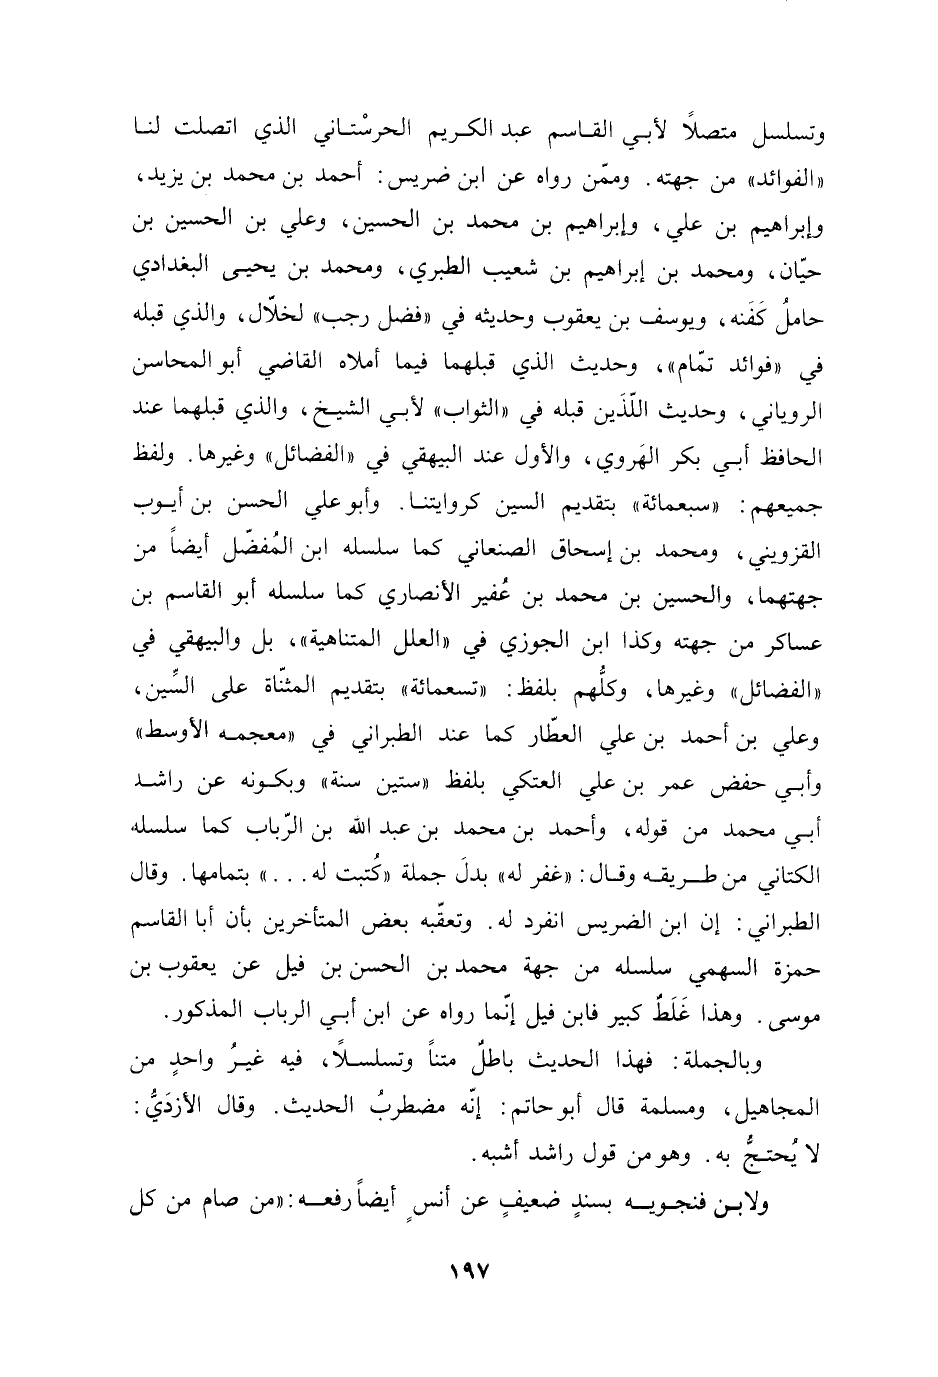 وتسلسل متصلاً لأبي القاسم عبد الكريم الحرسْتاني الذي اتصلت لنا
«الفوائد» من جهته. وممّن رواه عن ابن ضريس: أحمد بن محمد بن يزيد،
وإبراهيم بن علي، وإبراهيم بن محمد بن الحسين، وعلي بن الحسين بن
حيّان، ومحمد بن إبراهيم بن شعيب الطبري، ومحمد بن يحيى البغدادي
حاملُ كَفَنه، ويوسف بن يعقوب وحديثه في «فضل رجب» لخلّال، والذي قبله
في «فوائد تمّام»، وحديث الذي قبلهما فيما أملاه القاضي أبو المحاسن
الروياني، وحديث اللّذَين قبله في «الثواب» لأبي الشيخ، والذي قبلهما عند
الحافظ أبي بكر الهَروي، والأول عند البيهقي في «الفضائل» وغيرها. ولفظ
جميعهم: «سبعمائة» بتقديم السين كروايتنا. وأبو علي الحسن بن أيوب
القزويني، ومحمد بن إسحاق الصنعاني كما سلسله ابن المُفضّل أيضاً من
جهتهما، والحسين بن محمد بن عُفير الأنصاري كما سلسله أبو القاسم بن
عساكر من جهته وكذا ابن الجوزي في «العلل المتناهية»، بل والبيهقي في
«الفضائل» وغيرها، وكلُّهم بلفظ: «تسعمائة» بتقديم المثنّاة على السِّين،
وعلي بن أحمد بن علي العطّار كما عند الطبراني في «معجمه الأوسط»
وأبي حفض عمر بن علي العتكي بلفظ «ستين سنة» وبكونه عن راشد
أبي محمد من قوله، وأحمد بن محمد بن عبد الله بن الرّباب كما سلسله
الكتاني من طريقه وقال: «غفر له» بدلَ جملة «كُتبت له...» بتمامها. وقال
الطبراني: إن ابن الضريس انفرد له. وتعقّبه بعض المتأخرين بأن أبا القاسم
حمزة السهمي سلسله من جهة محمد بن الحسن بن فيل عن يعقوب بن
موسى. وهذا غَلَطٌ كبير فابن فيل إنّما رواه عن ابن أبي الرباب المذكور.
وبالجملة: فهذا الحديث باطلٌ متناً وتسلسلاً، فيه غيرُ واحدٍ من
المجاهيل، ومسلمة قال أبو حاتم: إنّه مضطربُ الحديث. وقال الأزدَيُّ:
لا يُحتجُّ به. وهو من قول راشد أشبه.
ولابن فنجويه بسندٍ ضعيفٍ عن أنسٍ أيضاً رفعه: «من صام من كل
١٩٧